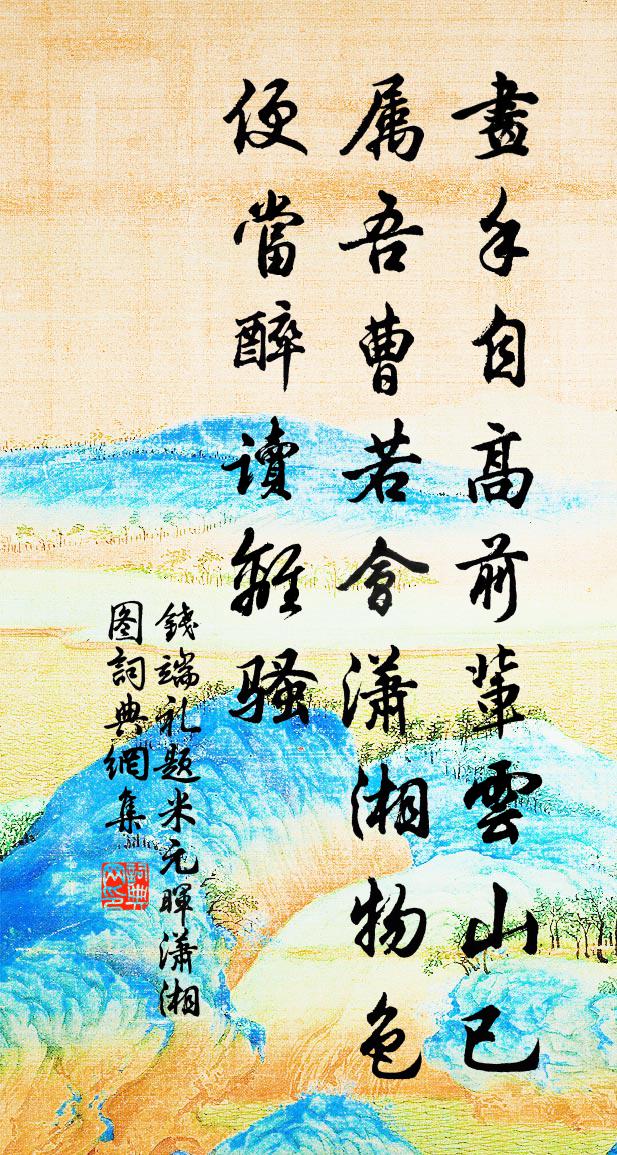 畫手自高前輩雲山已
属吾曹若會瀟湘物色
便當醉讀離騷
錢端礼题米元暉瀟湘
图詞典網集